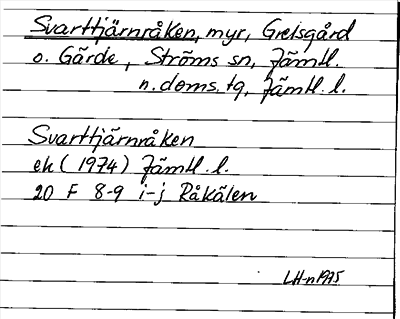 Svarttjärnråken, myr, Greisgård
o. Gärde, Ströms sn, Jämtl.
n. doms. tg, Jämtl. l.
Svarttjärnråken
ek (1974) Jämtl. l.
20 F 8-9 i-j Råkälen
LH-n 1975